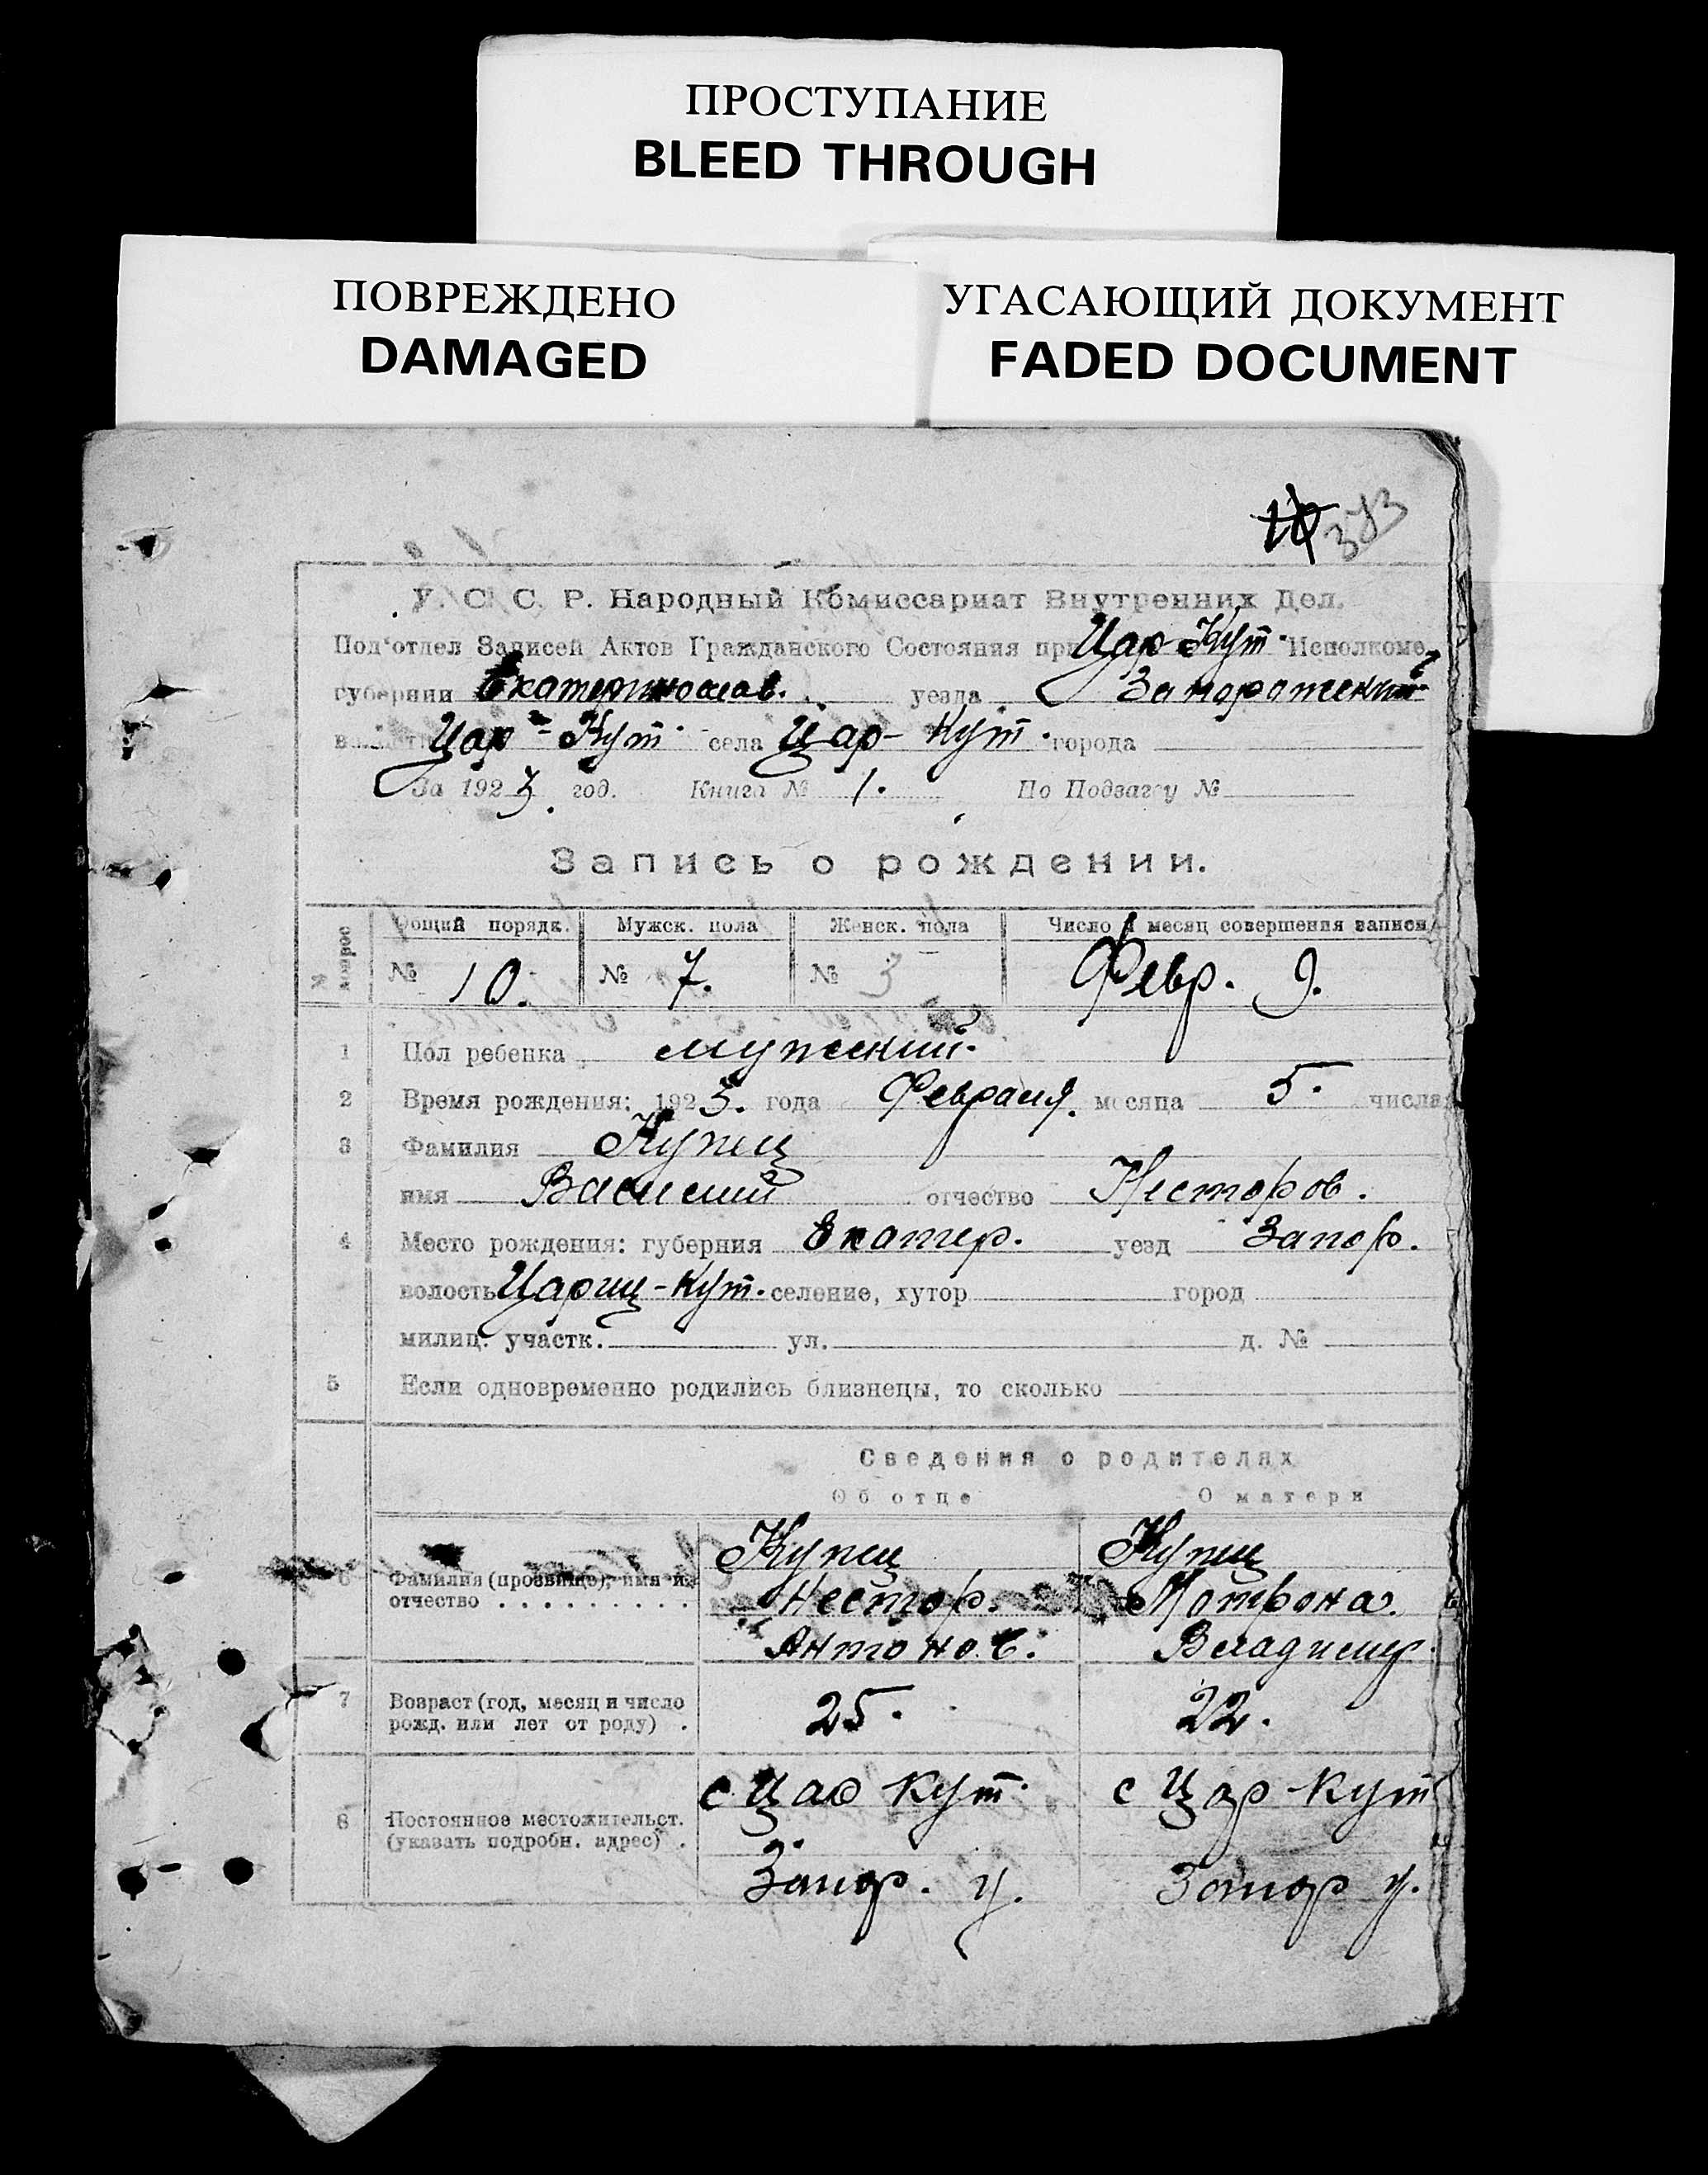 ПРОСТУПАНИЕ
BLEED THROUGH
ПОВРЕЖДЕНО
DAMAGED
УГАСАЮЩИЙ ДОКУМЕНТ
FADED DOCUMENT
10 373
У. С. С. Р. Народный Комиссариат Внутренних Дел.
Под'отдел Записей Актов Гражданского Состояния при Цар-Кут. Исполкоме
губернии Екатеринослав. уезда Запорожский
волости Цар-Кут. села Цар-Кут. города
За 1923 год. Книга № 1. По Подзагсу №
Запись о рождении.
№ вопрос Общий порядк. Мужск. пола Женск. пола Число и месяц совершения записи
№ 10. № 7. № 3 Февр. 9.
1 Пол ребенка мужский.
2 Время рождения: 1923. года Февраля. месяца 5. числа
3 Фамилия Купец
имя Василий отчество Несторов.
4 Место рождения: губерния Екатер. уезд Запор.
волость Цариц-Кут. селение, хутор город
милиц. участк. ул. д. №
5 Если одновременно родились близнецы, то сколько
Сведения о родителях
Об отце О матери
Купец Купец
6 Фамилия (прозвище), имя и Нестор. Мотрона.
отчество Антонов. Владимир.
7 Возраст (год, месяц и число 25. 22.
рожд. или лет от роду)
с Цар Кут. с Цар-Кут
8 Постоянное местожительст.
(указать подробн. адрес)
Запор. у. Запор у.